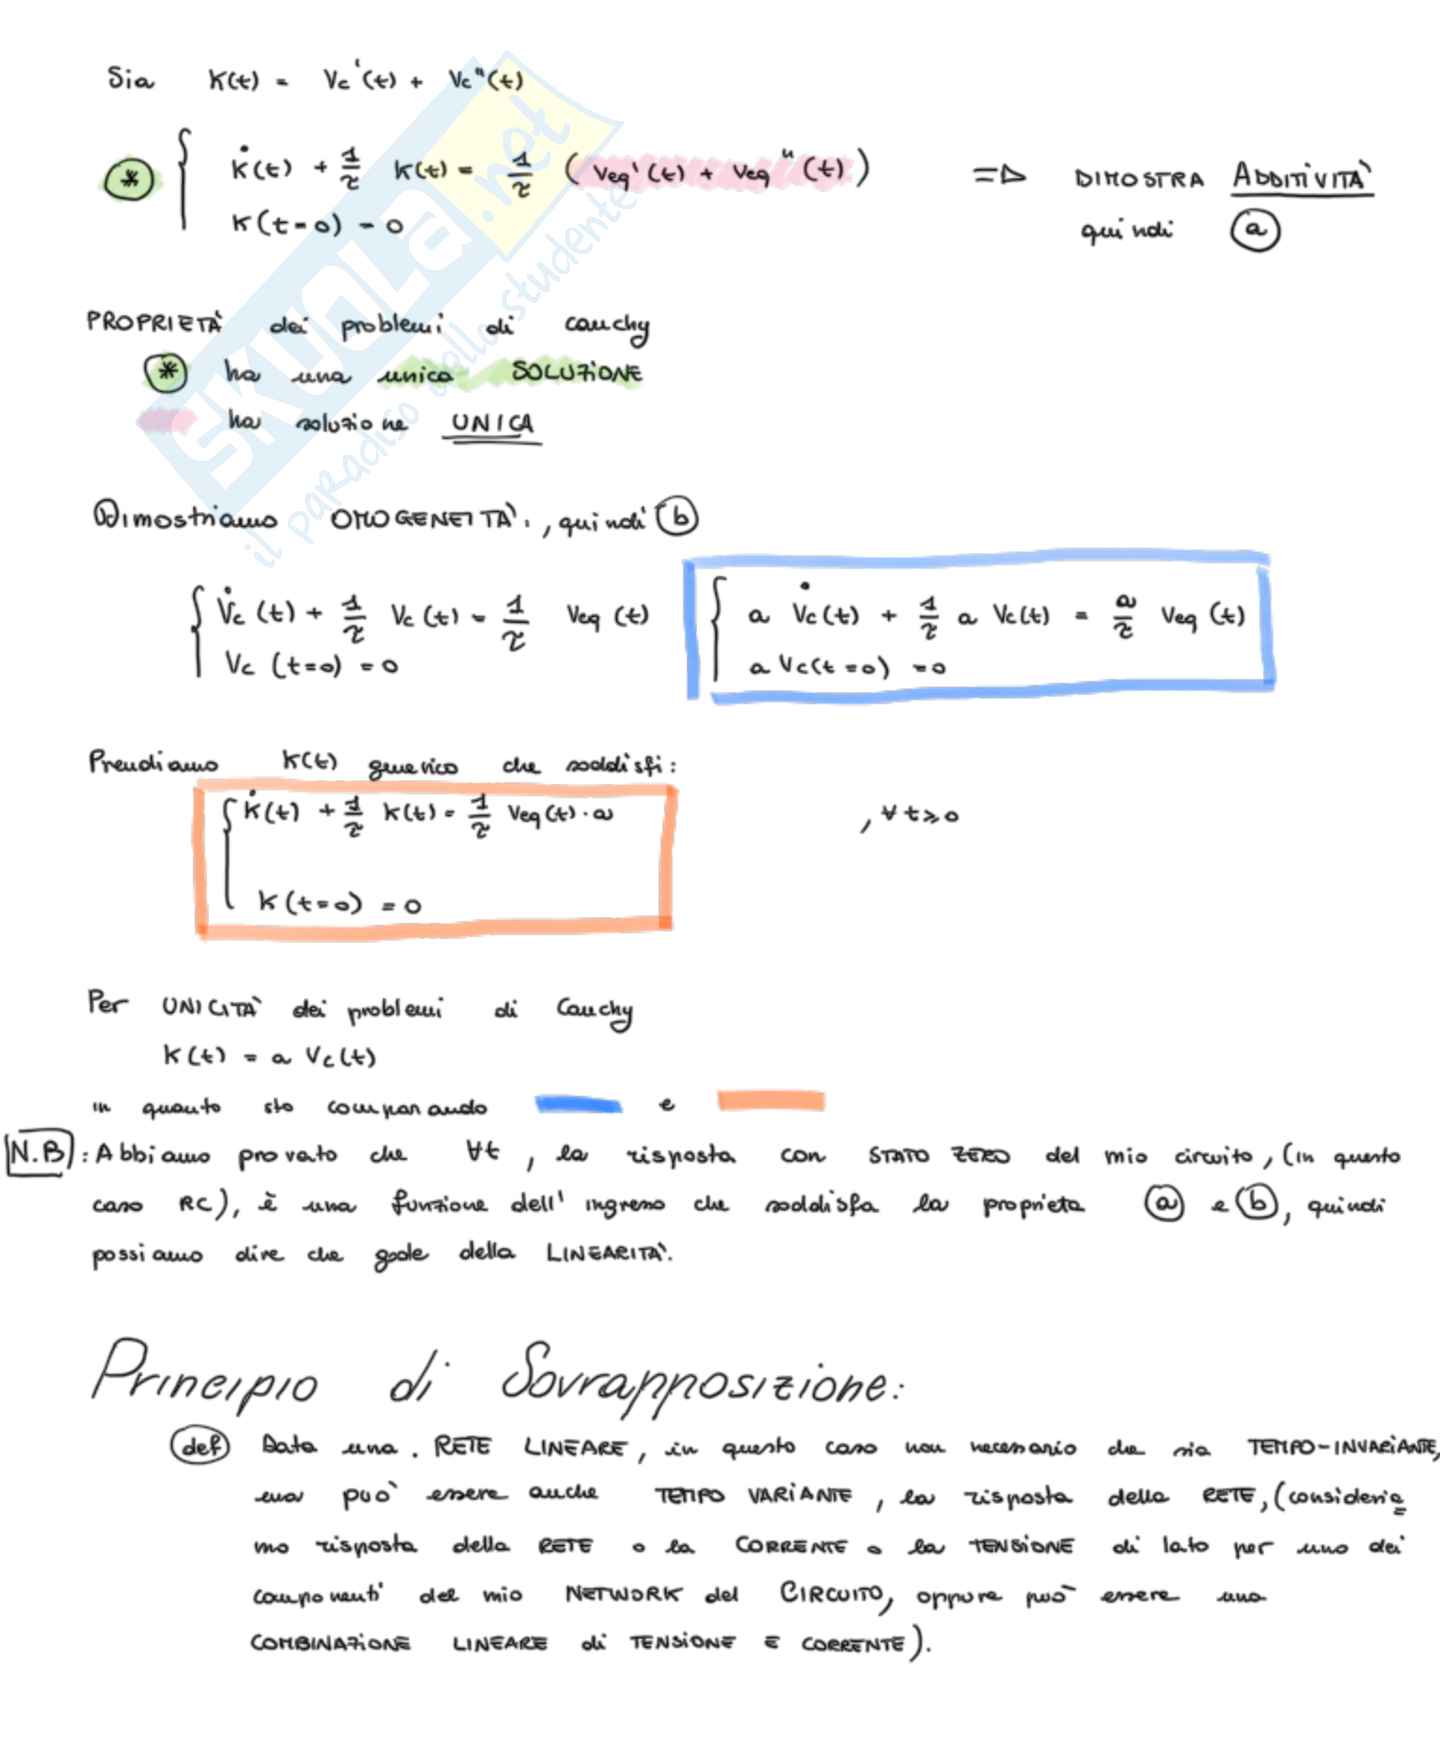 Sia K(t) = Vc'(t) + Vc"(t)
* { K̇(t) + 1/τ K(t) = 1/τ (Veq'(t) + Veq"(t)) => DIMOSTRA ADDITIVITÀ
K(t=0) = 0 quindi a
PROPRIETÀ dei problemi di Cauchy
* ha una unica SOLUZIONE
ha soluzione UNICA
Dimostriamo OMOGENEITÀ:, quindi b
{ V̇c(t) + 1/τ Vc(t) = 1/τ Veq(t) { a V̇c(t) + 1/τ a Vc(t) = a/τ Veq(t)
Vc(t=0) = 0 a Vc(t=0) = 0
Prendiamo K(t) generico che soddisfi:
{ K̇(t) + 1/τ K(t) = 1/τ Veq(t)·a , ∀t≥0
K(t=0) = 0
Per UNICITÀ dei problemi di Cauchy
K(t) = a Vc(t)
in quanto sto comparando e
N.B: Abbiamo provato che ∀t, la risposta con STATO ZERO del mio circuito, (in questo
caso RC), è una funzione dell'ingresso che soddisfa la proprietà a e b, quindi
possiamo dire che gode della LINEARITÀ.
Principio di Sovrapposizione:
def Data una. RETE LINEARE, in questo caso non necessario che sia TEMPO-INVARIANTE,
ma può essere anche TEMPO VARIANTE, la risposta della RETE, (consideria
mo risposta della RETE o la CORRENTE o la TENSIONE di lato per uno dei
componenti del mio NETWORK del CIRCUITO, oppure può essere una
COMBINAZIONE LINEARE di TENSIONE E CORRENTE).
SKUOLA.net
il paradiso dello studente